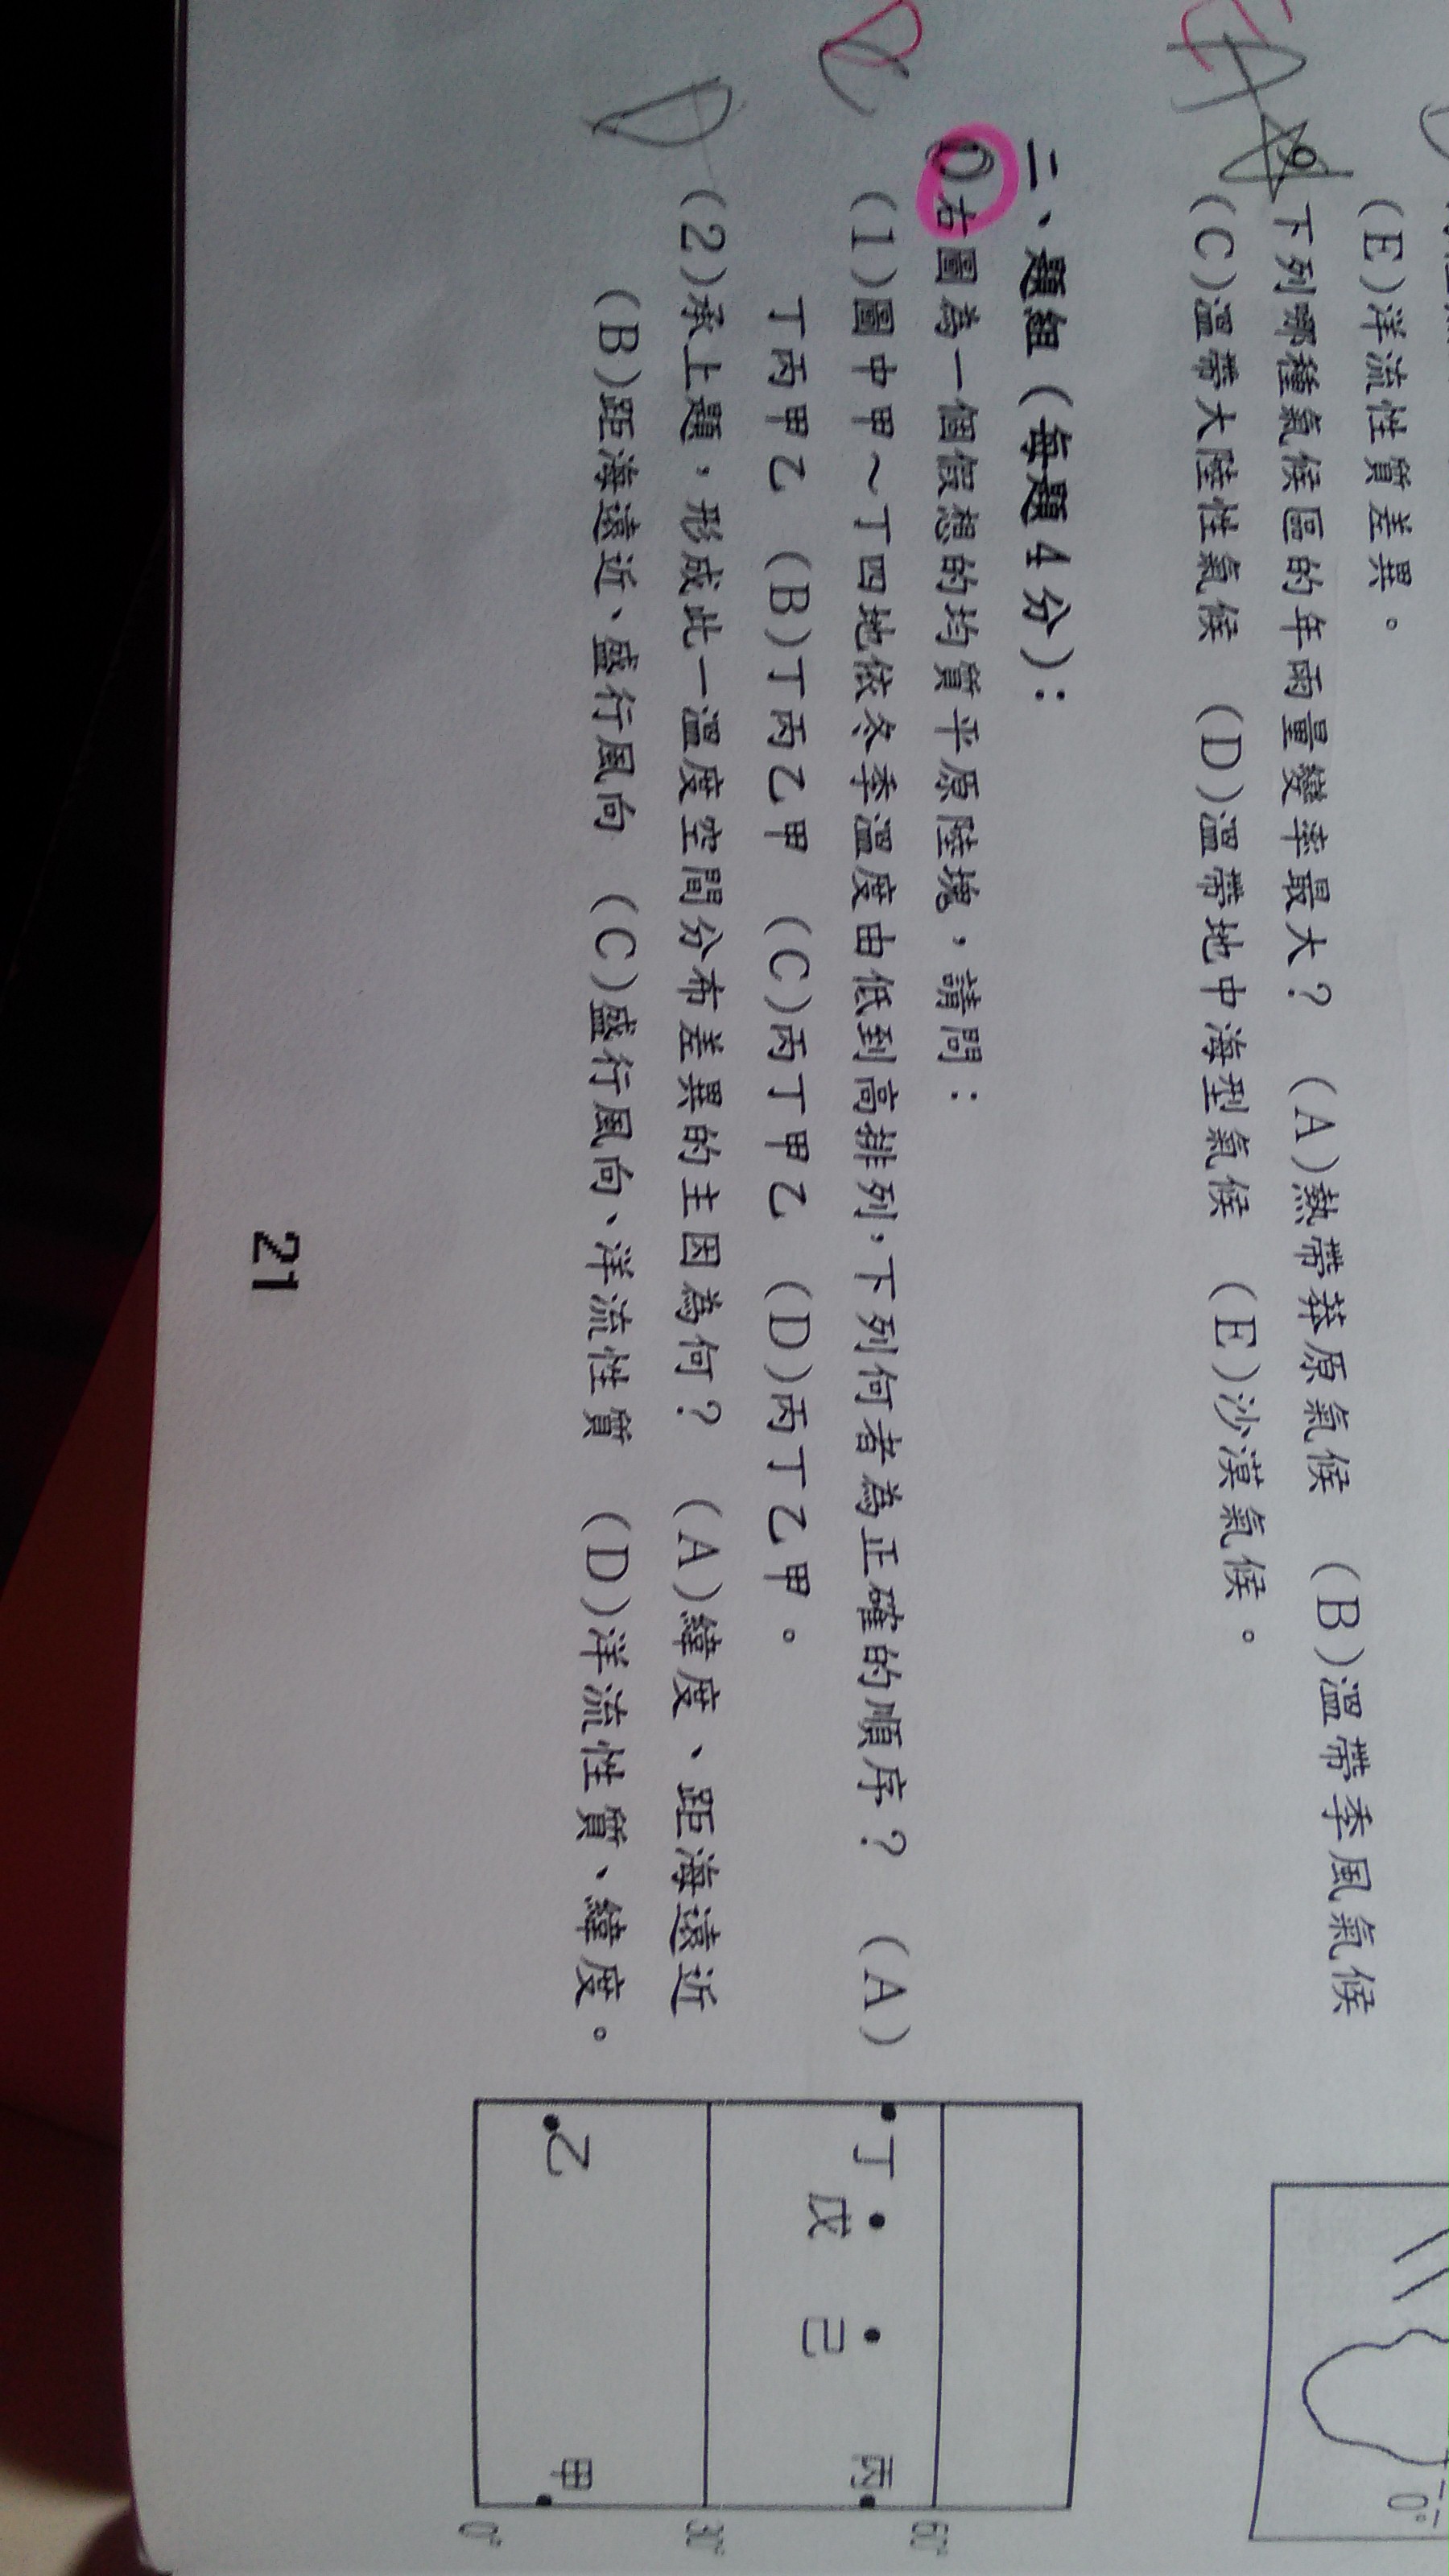 (E)洋流性質差異。
9.下列哪種氣候區的年雨量變率最大？ (A)熱帶莽原氣候 (B)溫帶季風氣候
(C)溫帶大陸性氣候 (D)溫帶地中海型氣候 (E)沙漠氣候。
二、題組(每題4分)：
右圖為一個假想的均質平原陸塊，請問：
D
(1)圖中甲～丁四地依冬季溫度由低到高排列，下列何者為正確的順序？ (A)
丁丙甲乙 (B)丁丙乙甲 (C)丙丁甲乙 (D)丙丁乙甲。
D
(2)承上題，形成此一溫度空間分布差異的主因為何？ (A)緯度、距海遠近
(B)距海遠近、盛行風向 (C)盛行風向、洋流性質 (D)洋流性質、緯度。
0°
60°
丁
戊
己
丙
30°
乙
甲
0°
21